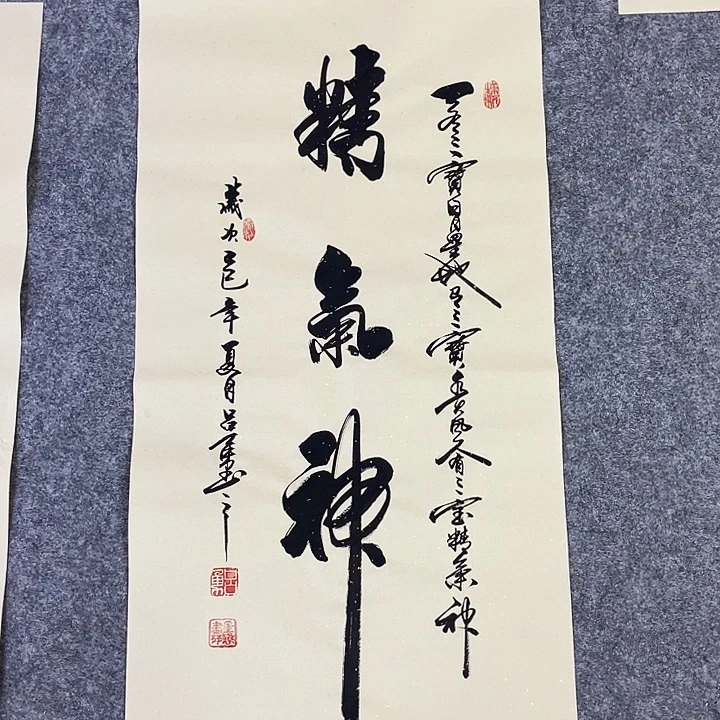 天有三寶日月星地有三寶水火風人有三寶精氣神
精氣神
歲次乙巳年夏月吕墨書